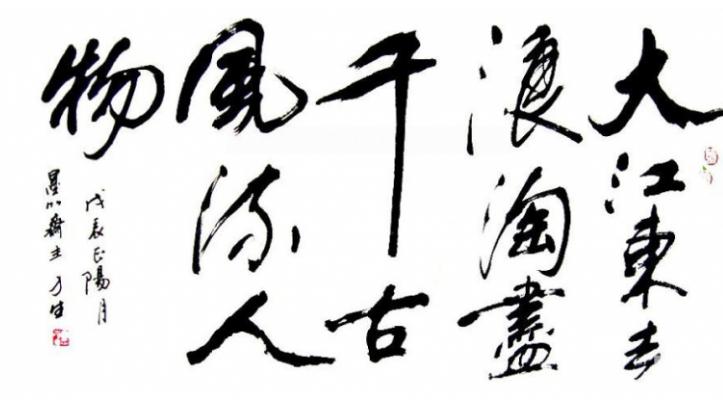 大江東去
浪淘盡
千古
風流人
物
戊辰正陽月
墨心齋主方生